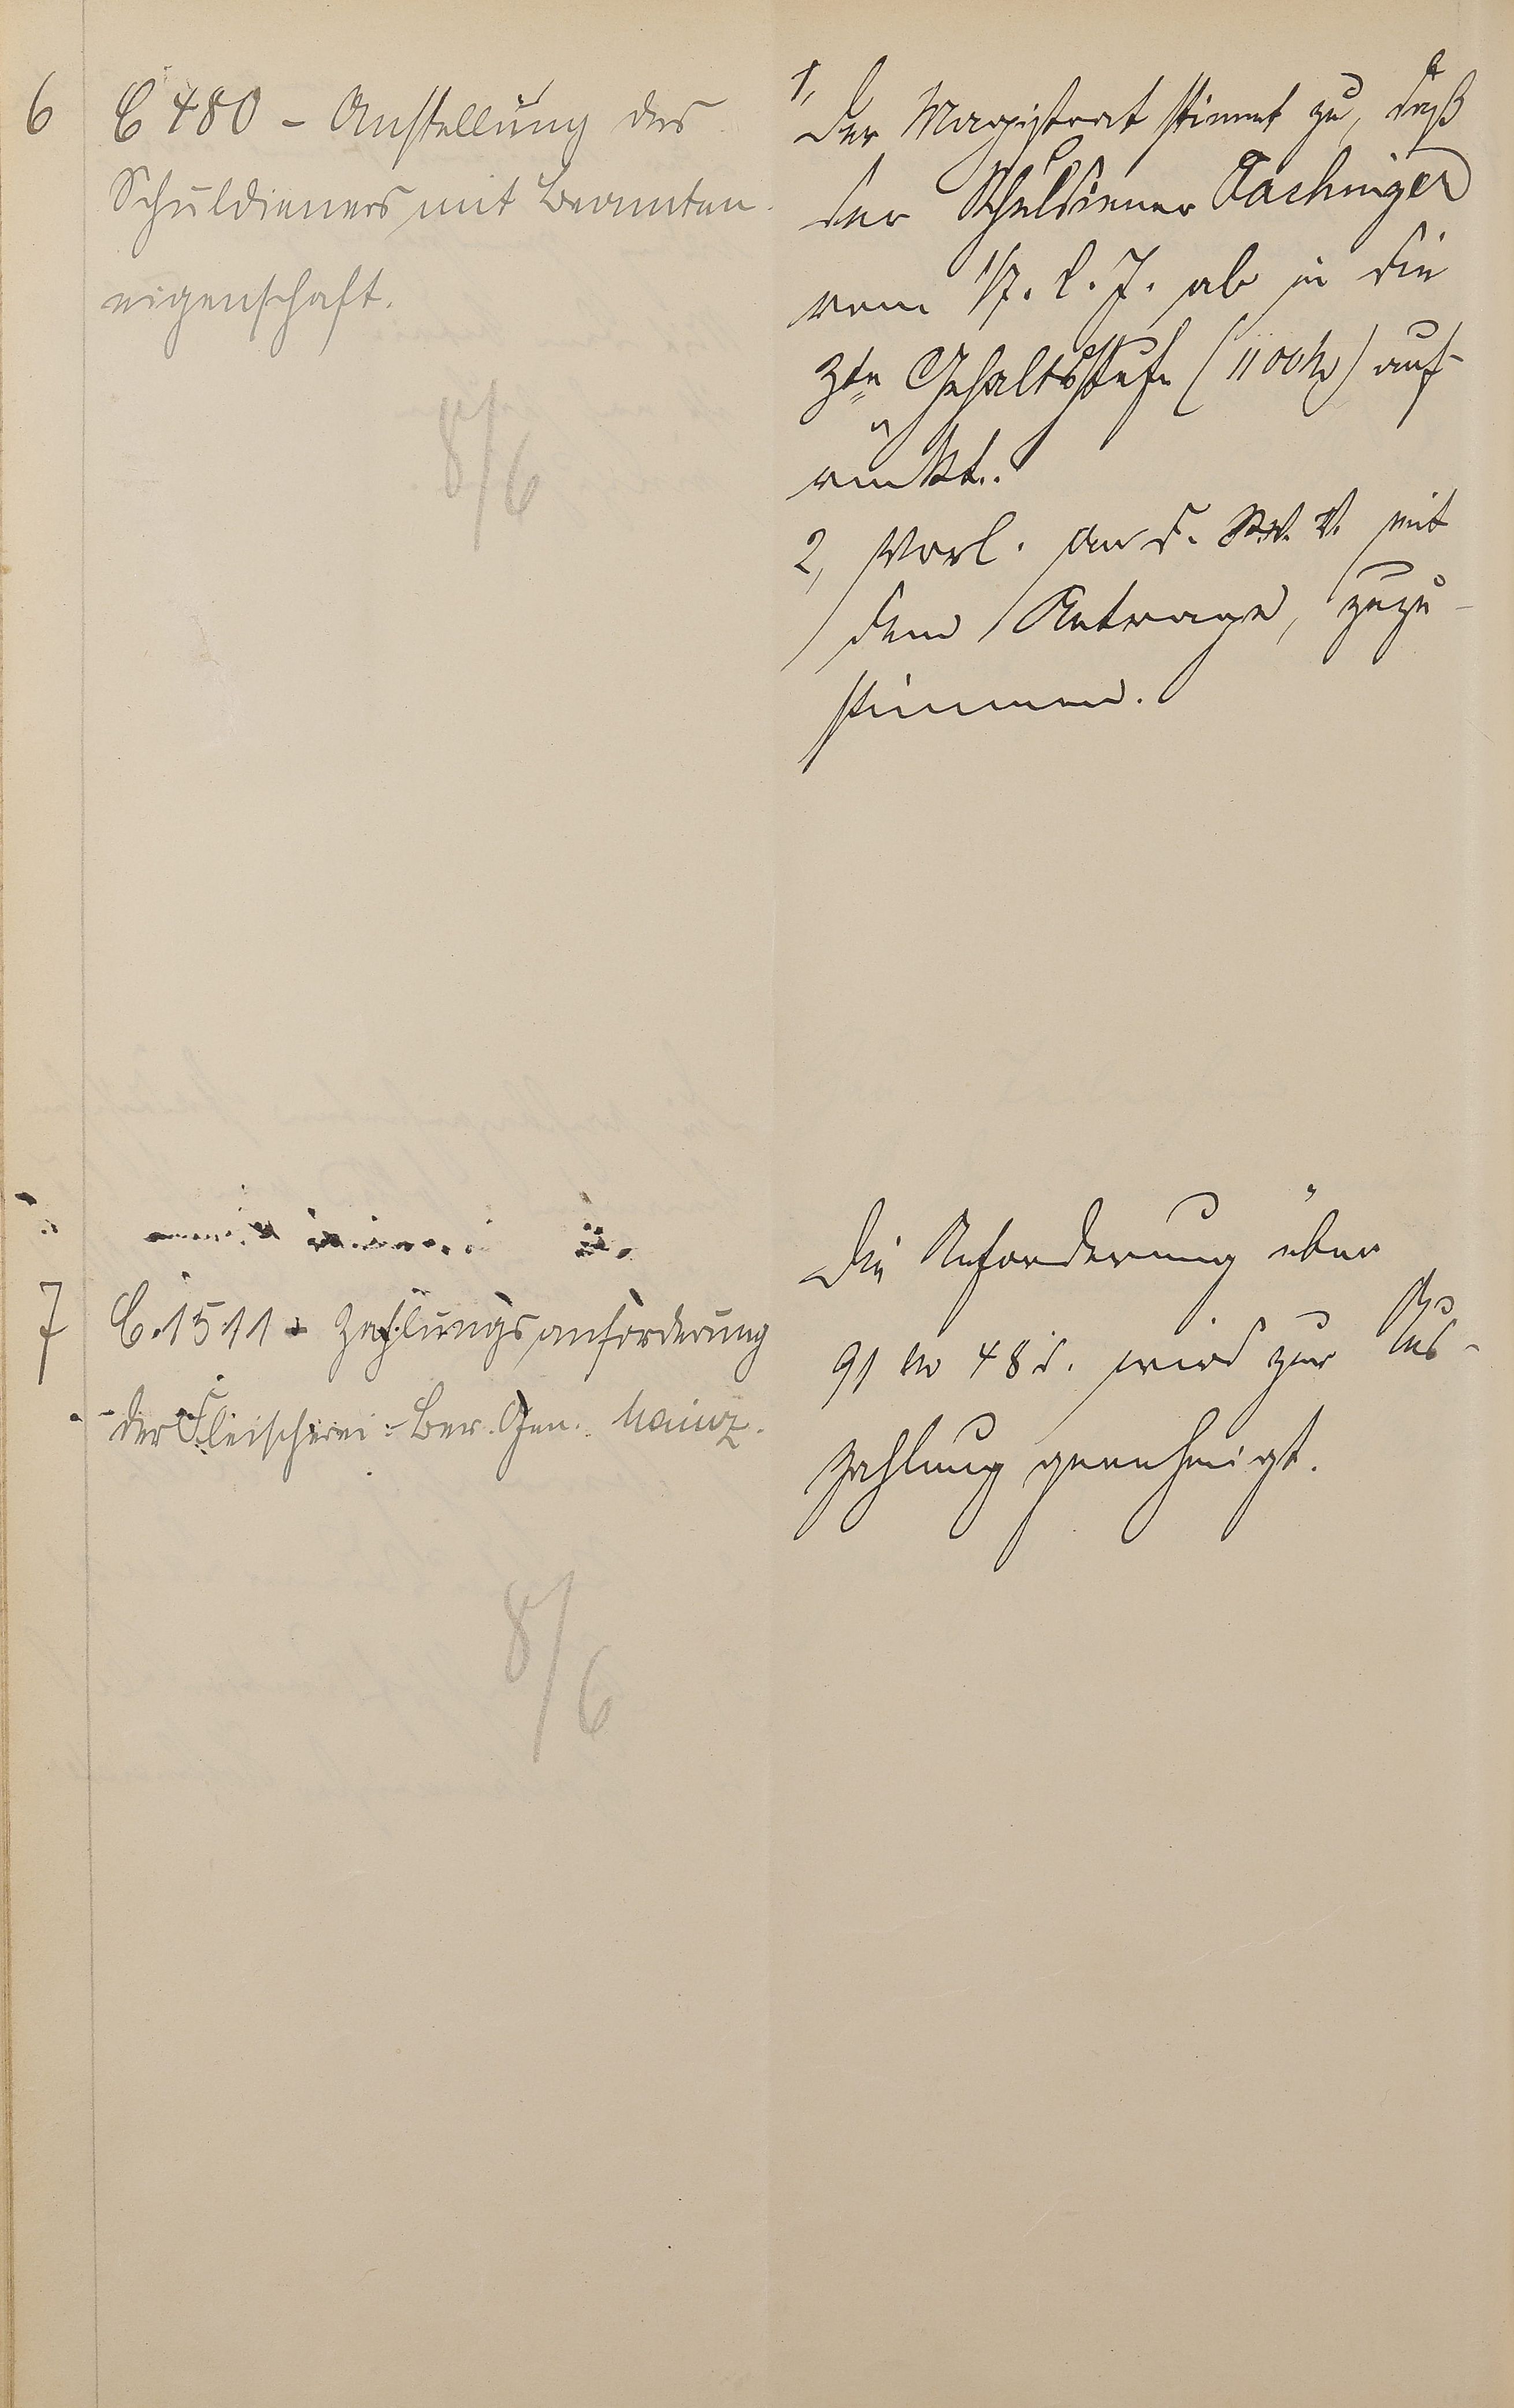 6 C 480 - Anstellung des
Schuldieners mit Beamten-
eigenschaft.
8/6
1, Der Magistrat stimmt zu, daß
der Schuldiener Fachinger
vom 1/7. l. J. ab in die
2te Gehaltsstufe (1100 M) auf-
rückt.
2, Vorl. an d. St. V. V. mit
dem Antrage, zuzu-
stimmen.
7 C. 1511 - Zahlungsanforderung
der Fleischerei-Ber. Gen. Mainz.
8/6
Die Anforderung über
91 M 48 d. wird zur Aus-
zahlung genehmigt.